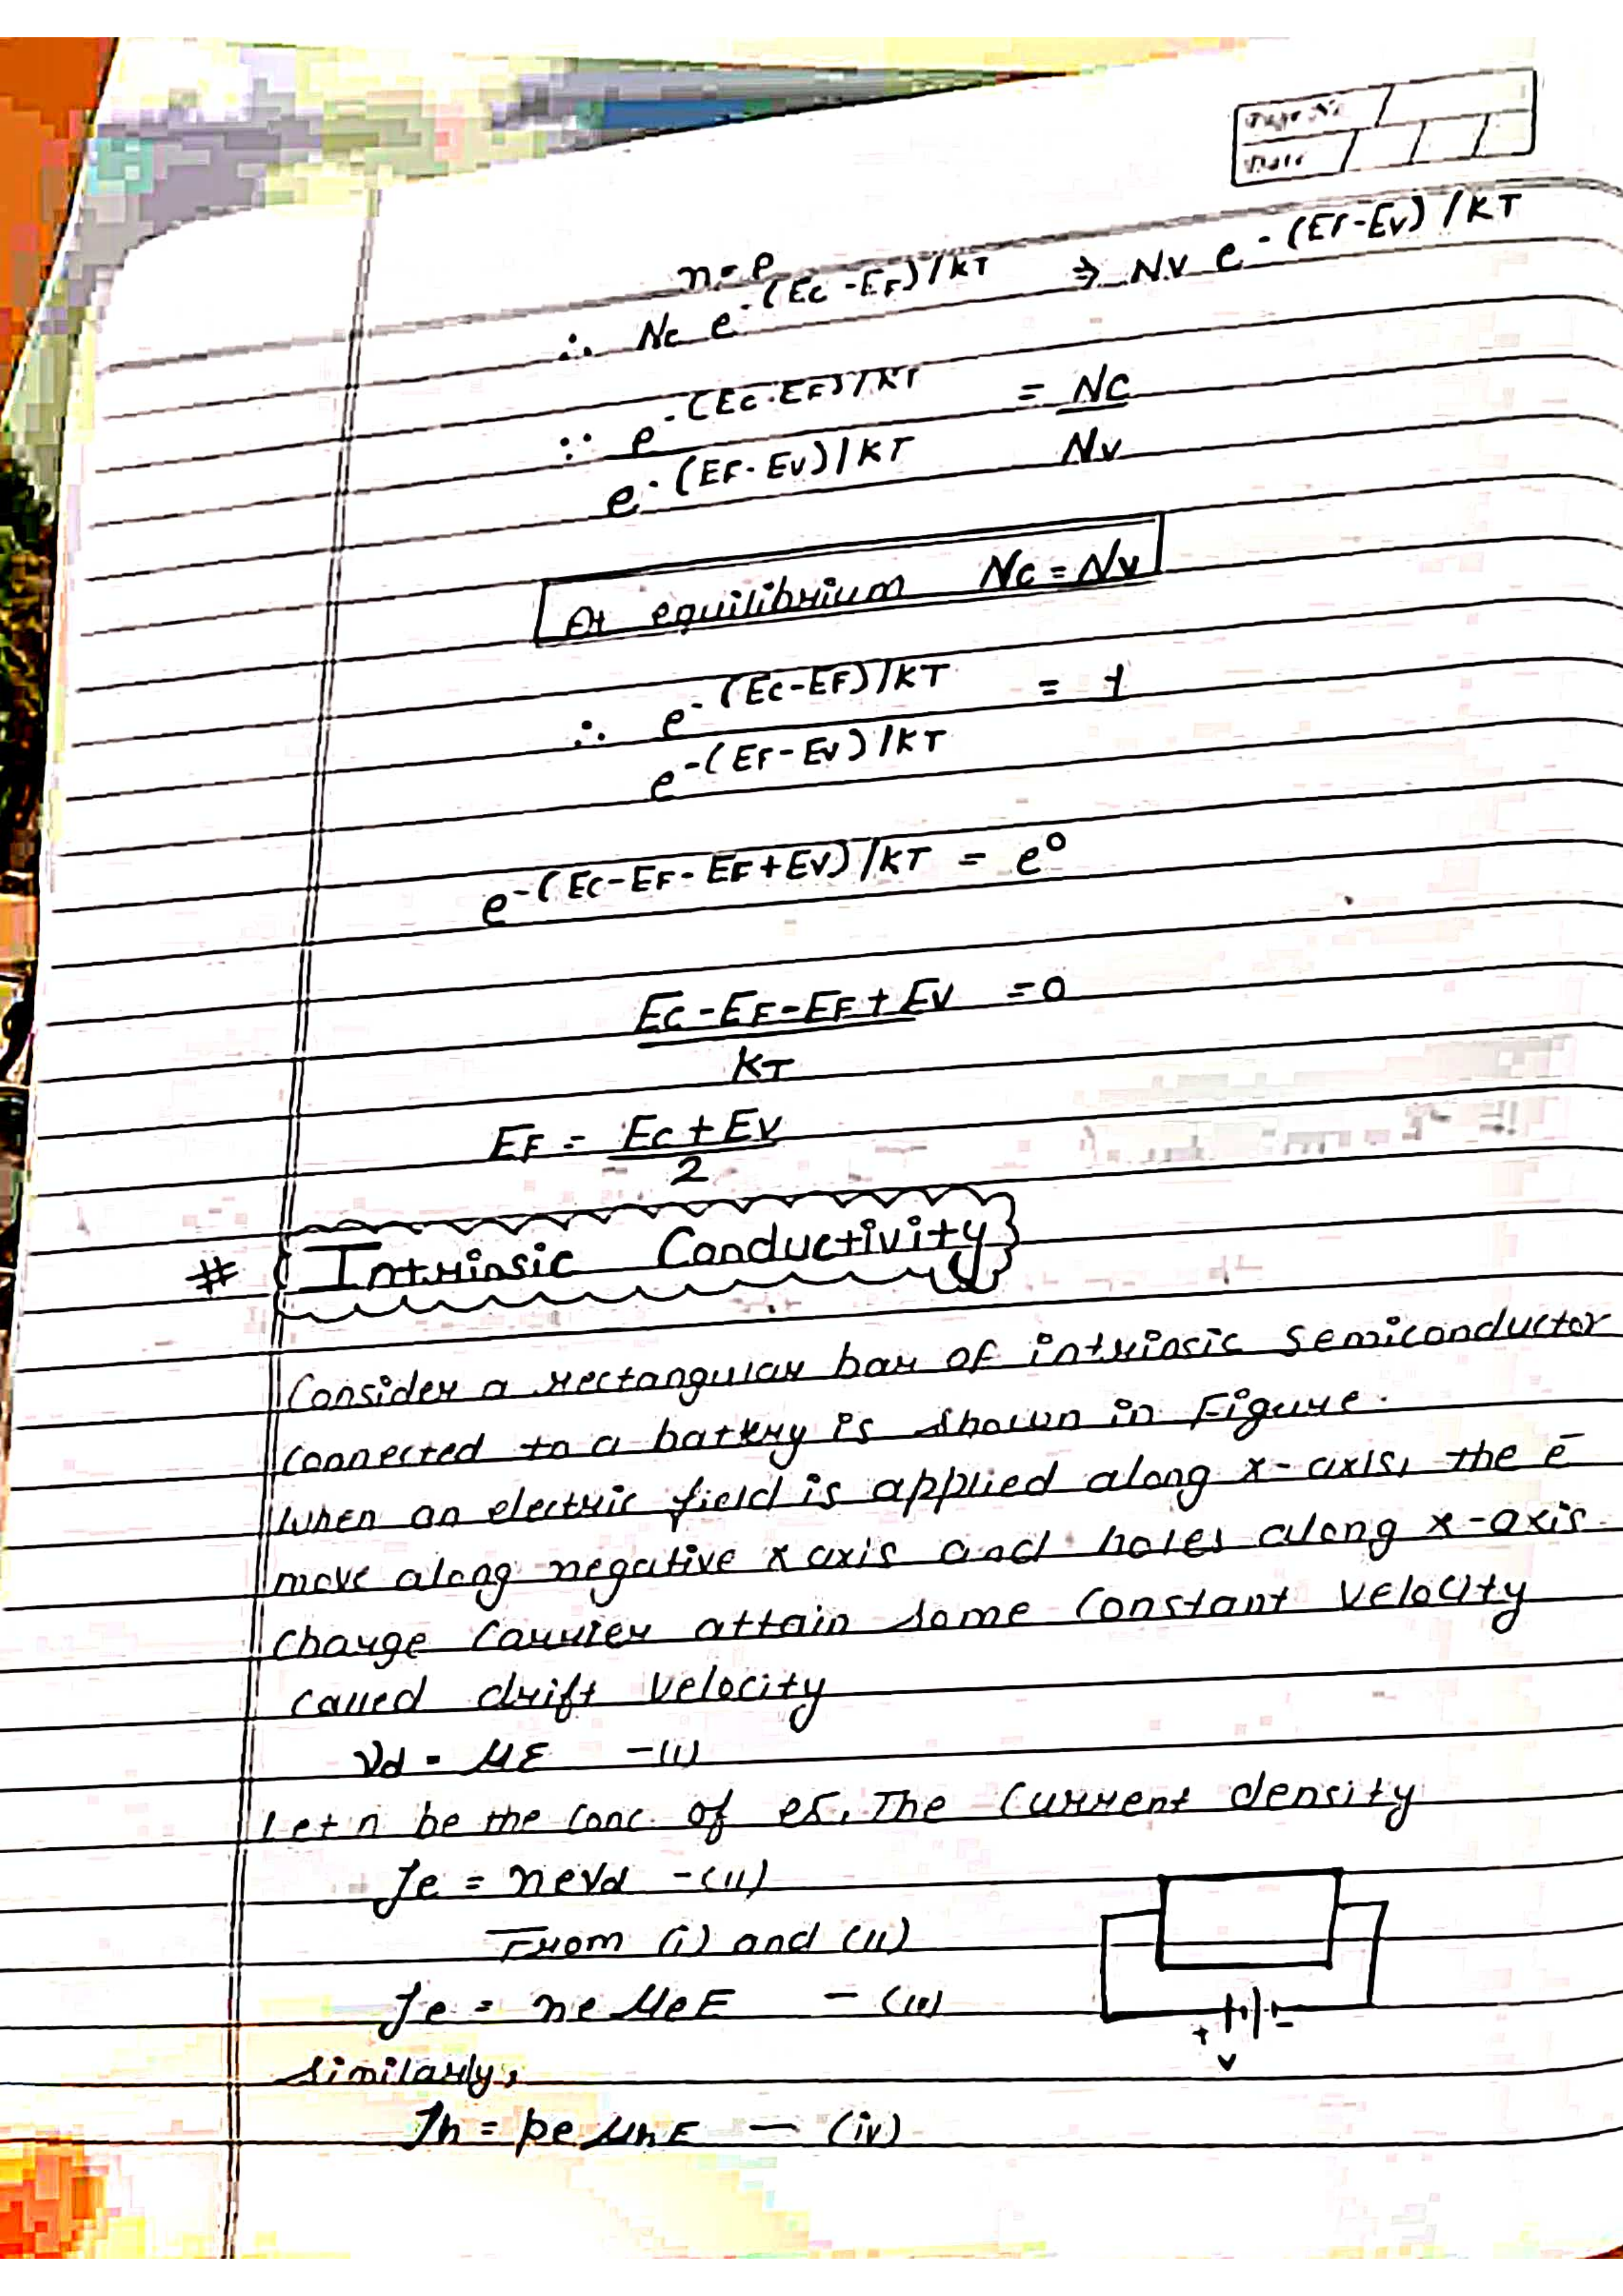 Page No.
Date
n = p
∴ Nc e^-(Ec-EF)/KT ⇒ Nv e^-(EF-Ev)/KT
∵ e^-(Ec-EF)/KT / e^-(EF-Ev)/KT = Nc/Nv
At equilibrium Nc = Nv
∴ e^-(Ec-EF)/KT / e^-(EF-Ev)/KT = 1
e^-(Ec-EF-EF+Ev)/KT = e^0
Ec-EF-EF+Ev / KT = 0
EF = Ec+Ev / 2
# Intrinsic Conductivity
Consider a rectangular bar of intrinsic semiconductor
connected to a battery is shown in Figure.
When an electric field is applied along x-axis, the e⁻
move along negative x axis and holes along x-axis.
Charge Carrier attain some Constant velocity
called drift velocity
Vd = μE -(i)
Let n be the conc. of es. The Current density
Je = neVd -(ii)
From (i) and (ii)
Je = ne μe E - (iii)
Similarly,
Jh = pe μh E - (iv)
+ -
V